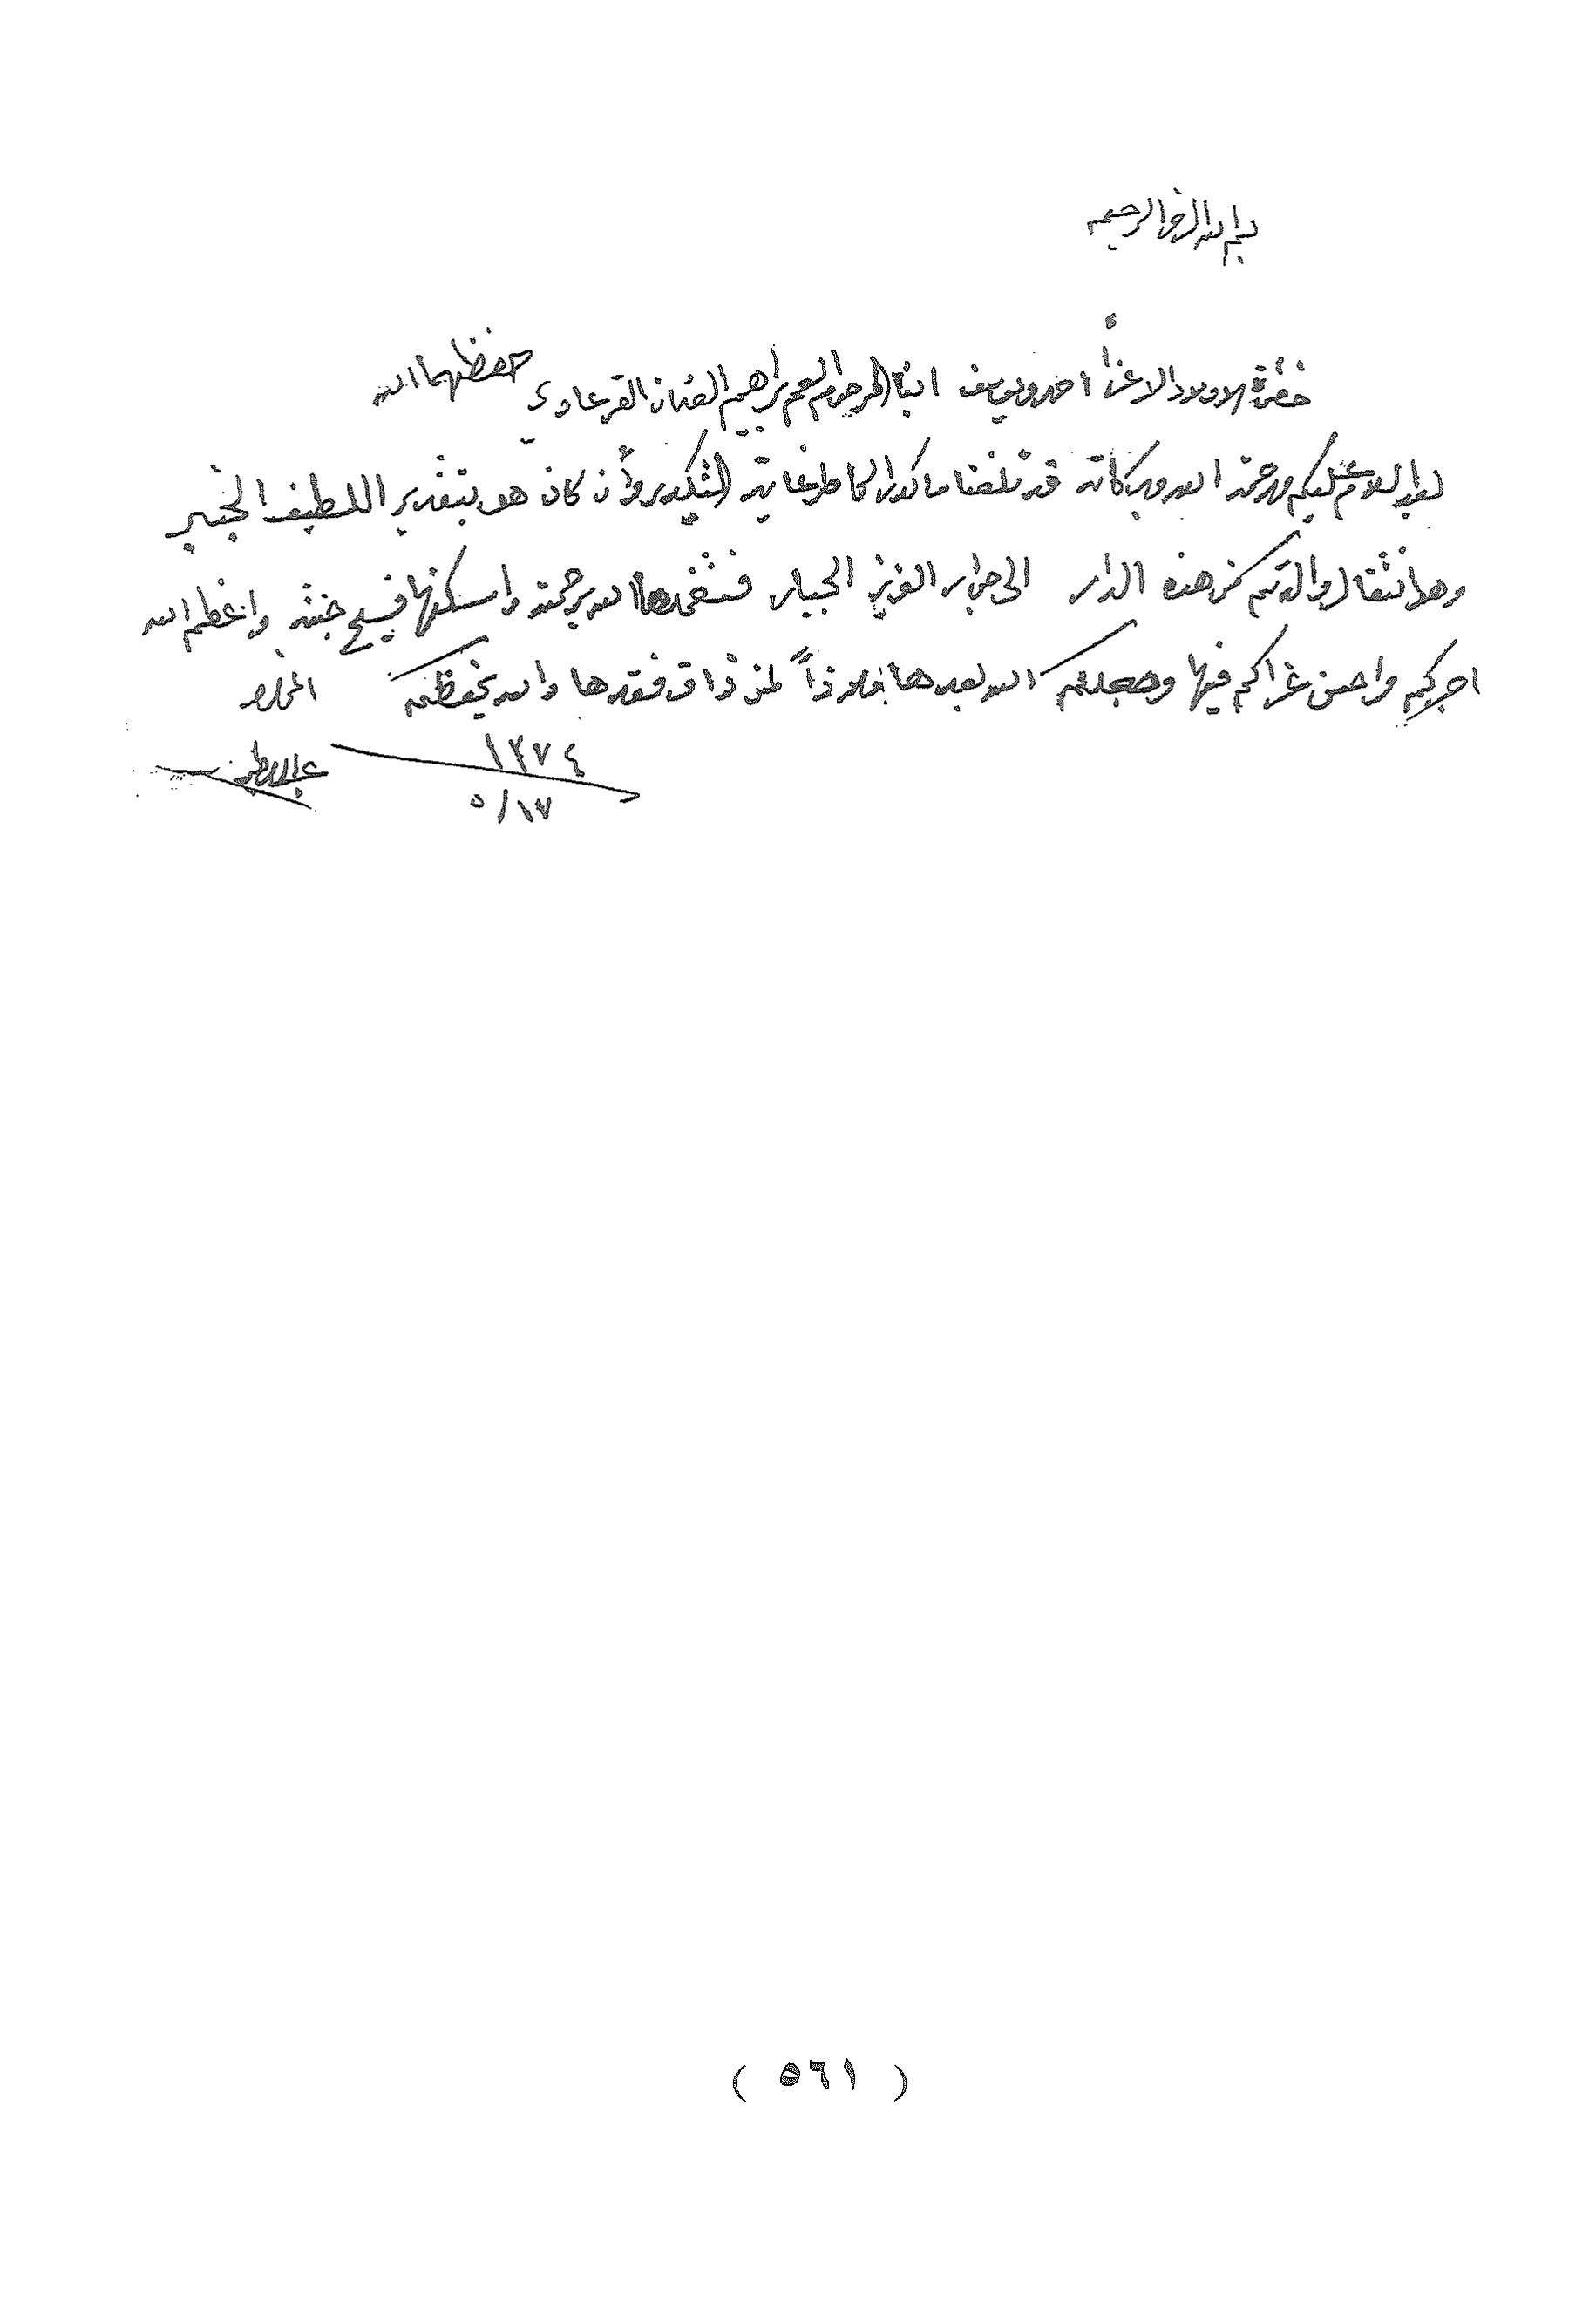 بسم الله الرحمن الرحيم
حضرة الاولاد الاعزاء احمد ويوسف ابناء المرحوم العم ابراهيم العثمان القرعاوي حفظهما الله
بعد السلام عليكم ورحمة الله وبركاته قد بلغنا ما كدر الخاطر غاية التكدير وأن كان هو بتقدير اللطيف الخبير
وهو انتقال والدتكم من هذه الدار الى جوار العزيز الجبار فتغمدها الله برحمته واسكنها فسيح جنته واعظم الله
اجركم واحسن عزاكم فيها وجعلكم الله بعدها ملاذاً لمن ذاق فقدها والله يحفظكم المخلص
١٣٧٤
٥/١٧
( ٥٦١ )